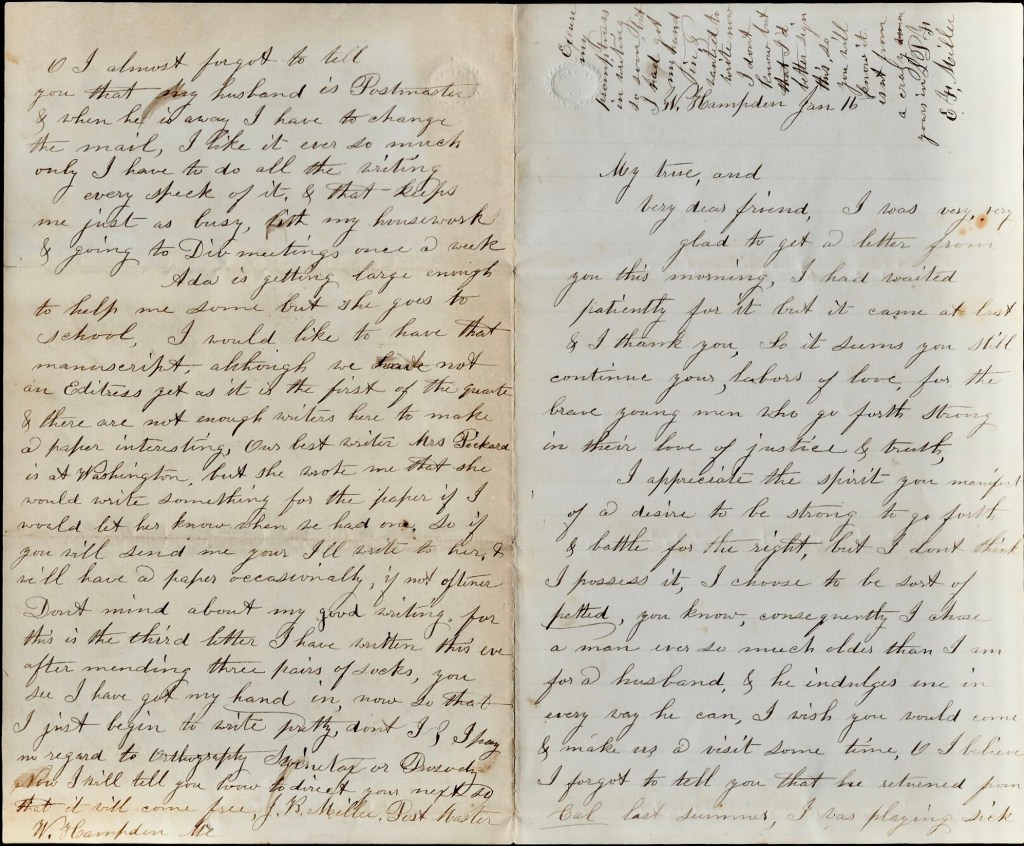 O I almost forgot to tell
you that my husband is Postmaster
& when he is away I have to change
the mail, I like it ever so much
only I have to do all the writing
every speck of it, & that keeps
me just as busy, with my housework
& going to Div meetings once a week
Ada is getting large enough
to help me some but she goes to
school, I would like to have that
manuscript, although we have not
an Editress yet as it is the first of the quarte
& there are not enough writers here to make
a paper interesting, Our best writer Mrs Pickard
is at Washington, but she wrote me that she
would write something for the paper if I
would let her know when we had one. So if
you will send me your I'll write to her, &
we'll have a paper occasionally, if not oftener
Dont mind about my good writing, for
this is the third letter I have written this eve
after mending three pairs of socks, you
see I have got my hand in, now so that
I just begin to write pretty, dont I? I pay
no regard to Orthography Syinetax or Prosody
Now I will tell you how to direct your next so
that it will come free, J. B. Mille, Post Master
W. Hampden Me
Excuse
my
promptness
in writing
so soon but
I had got
my hand
in &
wanted to
write now
I dont
know but
that I'd
better sign
this, so,
you will
know it
isnt from
a crazy man
yours in
Mille
W. Hampden Jan 16
My true, and
Very dear friend, I was very, very
glad to get a letter from
you this morning, I had waited
patiently for it but it came at last
& I thank you, So it seems you still
continue your, labors of love, for the
brave young men who go forth strong
in their love of justice & truth,
I appreciate the spirit you manifest
of a desire to be strong to go forth
& battle for the right, but I dont think
I possess it, I choose to be sort of
petted, you know, consequently I chose
a man ever so much older than I am
for a husband, & he indulges me in
every way he can, I wish you would come
& make us a visit some time, O I believe
I forgot to tell you that he returned from
Cal last summer, I was playing sick